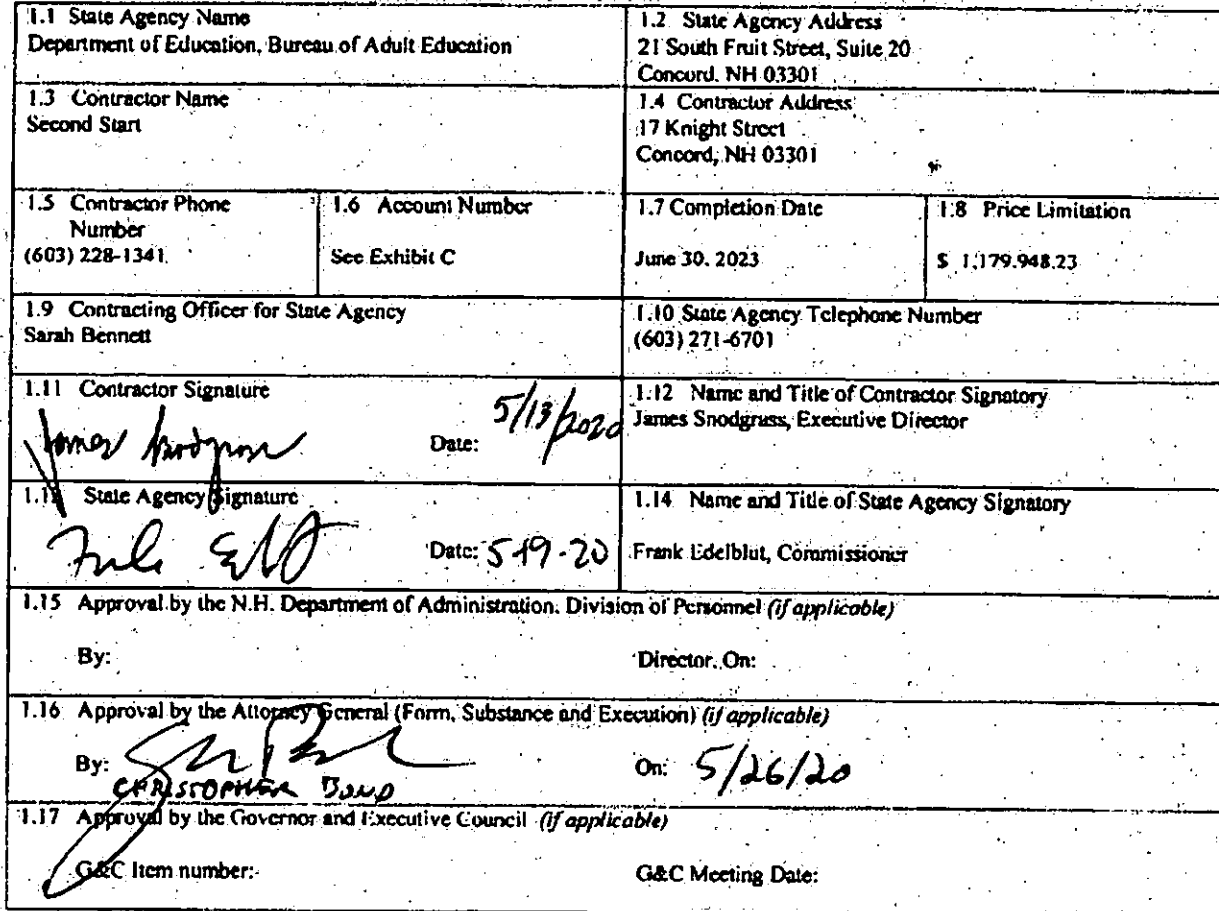 1.1 State Agency Name
Department of Education, Bureau of Adult Education
1.2 State Agency Address
21 South Fruit Street, Suite 20
Concord, NH 03301
1.3 Contractor Name
Second Start
1.4 Contractor Address
17 Knight Street
Concord, NH 03301
1.5 Contractor Phone
Number
(603) 228-1341
1.6 Account Number
See Exhibit C
1.7 Completion Date
June 30, 2023
1.8 Price Limitation
$ 1,179,948.23
1.9 Contracting Officer for State Agency
Sarah Bennett
1.10 State Agency Telephone Number
(603) 271-6701
1.11 Contractor Signature
James Snodgrass
Date: 5/13/2020
1.12 Name and Title of Contractor Signatory
James Snodgrass, Executive Director
1.13 State Agency Signature
Date: 5-19-20
1.14 Name and Title of State Agency Signatory
Frank Edelblut, Commissioner
1.15 Approval by the N.H. Department of Administration, Division of Personnel (if applicable)
By:
Director, On:
1.16 Approval by the Attorney General (Form, Substance and Execution) (if applicable)
By:
CHRISTOPHER BOND
On: 5/26/20
1.17 Approval by the Governor and Executive Council (if applicable)
G&C Item number:
G&C Meeting Date: